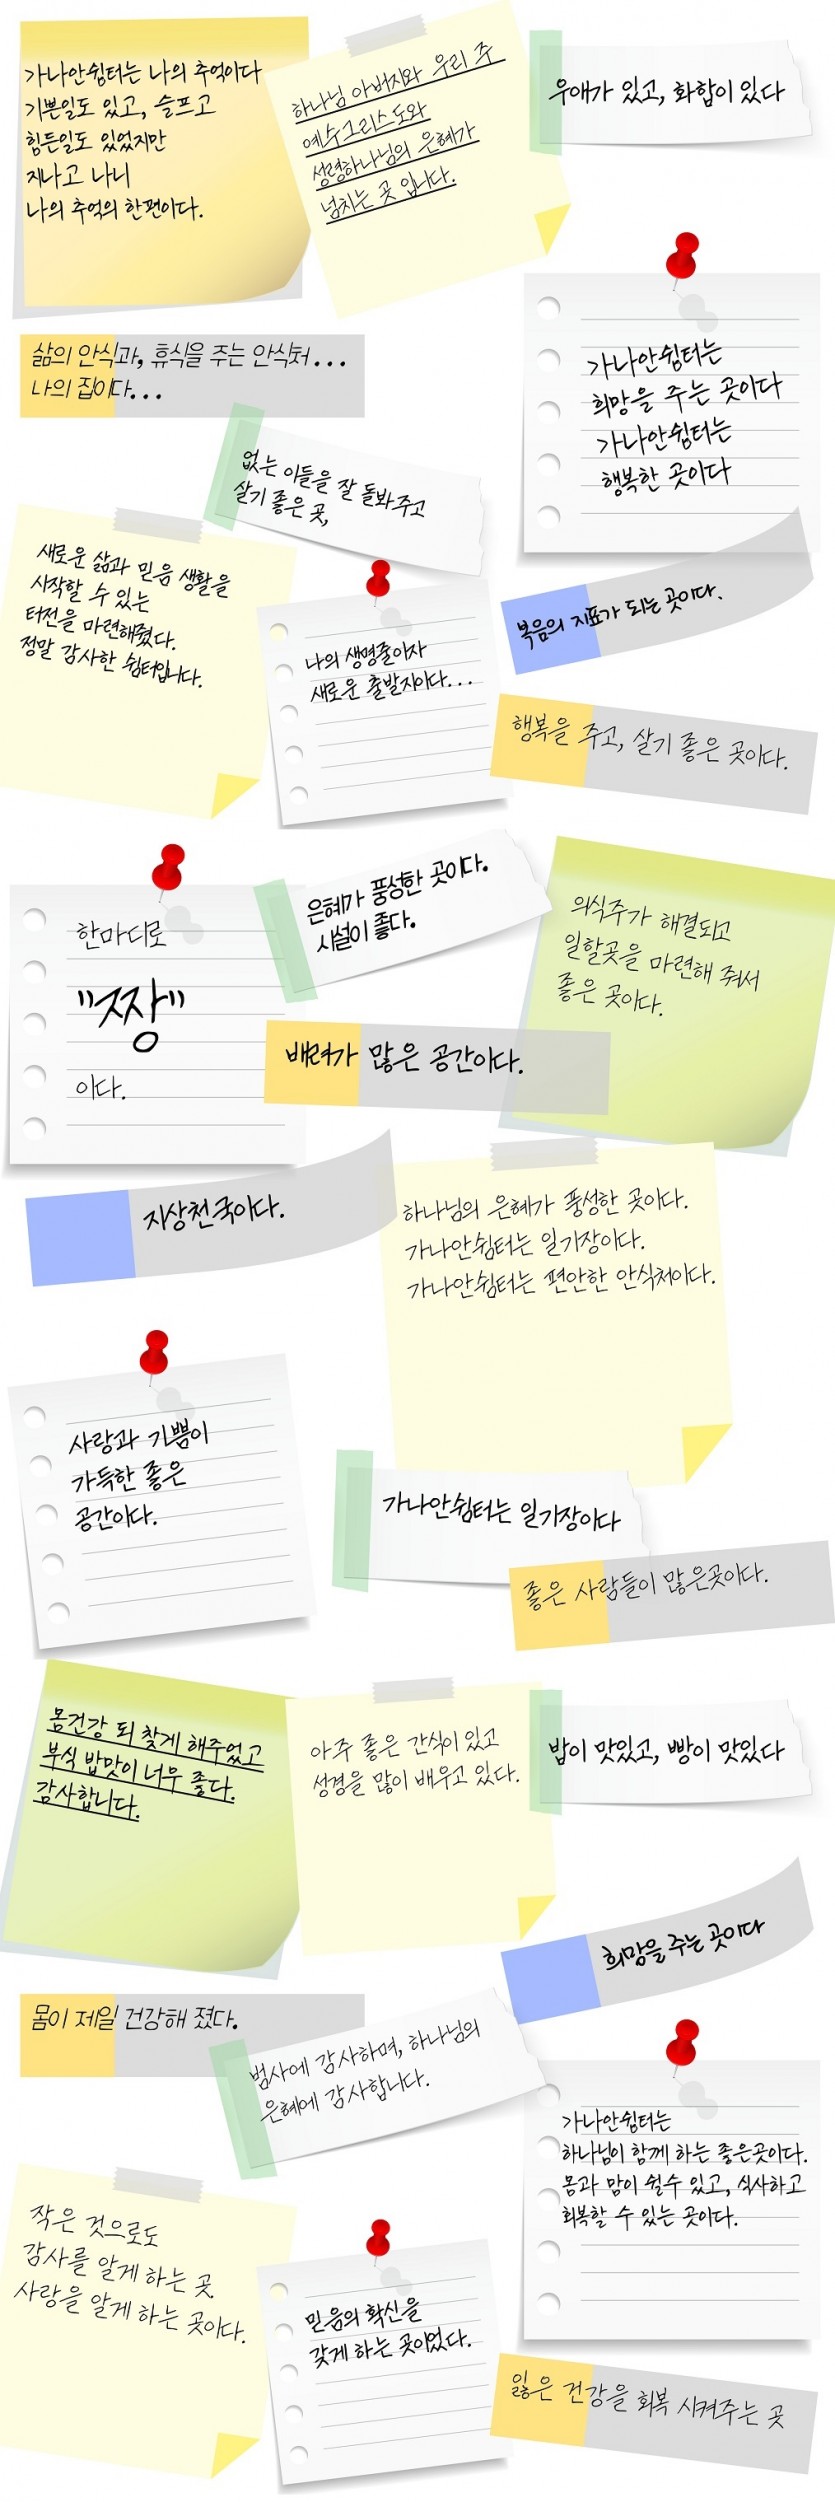 가나안쉼터는 나의 추억이다
기쁜일도 있고, 슬프고
힘든일도 있었지만
지나고 나니
나의 추억의 한편이다.
하나님 아버지와 우리 주
예수그리스도와
성령하나님의 은혜가
넘치는 곳 입니다.
우애가 있고, 화합이 있다
삶의 안식과, 휴식을 주는 안식처...
나의 집이다...
가나안쉼터는
희망을 주는 곳이다
가나안쉼터는
행복한 곳이다
없는 이들을 잘 돌봐주고
살기 좋은 곳,
새로운 삶과 믿음 생활을
시작할 수 있는
터전을 마련해줬다.
정말 감사한 쉼터입니다.
나의 생명줄이자
새로운 출발지이다...
복음의 지표가 되는 곳이다.
행복을 주고, 살기 좋은 곳이다.
한마디로
"짱"
이다.
은혜가 풍성한 곳이다.
시설이 좋다.
의식주가 해결되고
일할곳을 마련해 줘서
좋은 곳이다.
배려가 많은 공간이다.
지상천국이다.
하나님의 은혜가 풍성한 곳이다.
가나안쉼터는 일기장이다.
가나안쉼터는 편안한 안식처이다.
사랑과 기쁨이
가득한 좋은
공간이다.
가나안쉼터는 일기장이다
좋은 사람들이 많은곳이다.
몸건강 되 찾게 해주었고
부식 밥맛이 너무 좋다.
감사합니다.
아주 좋은 간식이 있고
성경을 많이 배우고 있다.
밥이 맛있고, 빵이 맛있다
희망을 주는 곳이다
몸이 제일 건강해 졌다.
범사에 감사하며, 하나님의
은혜에 감사합니다.
가나안쉼터는
하나님이 함께 하는 좋은곳이다.
몸과 맘이 쉴수 있고, 식사하고
회복할 수 있는 곳이다.
작은 것으로도
감사를 알게 하는 곳
사랑을 알게 하는 곳이다.
믿음의 확신을
갖게 하는 곳이었다.
잃은 건강을 회복 시켜주는 곳